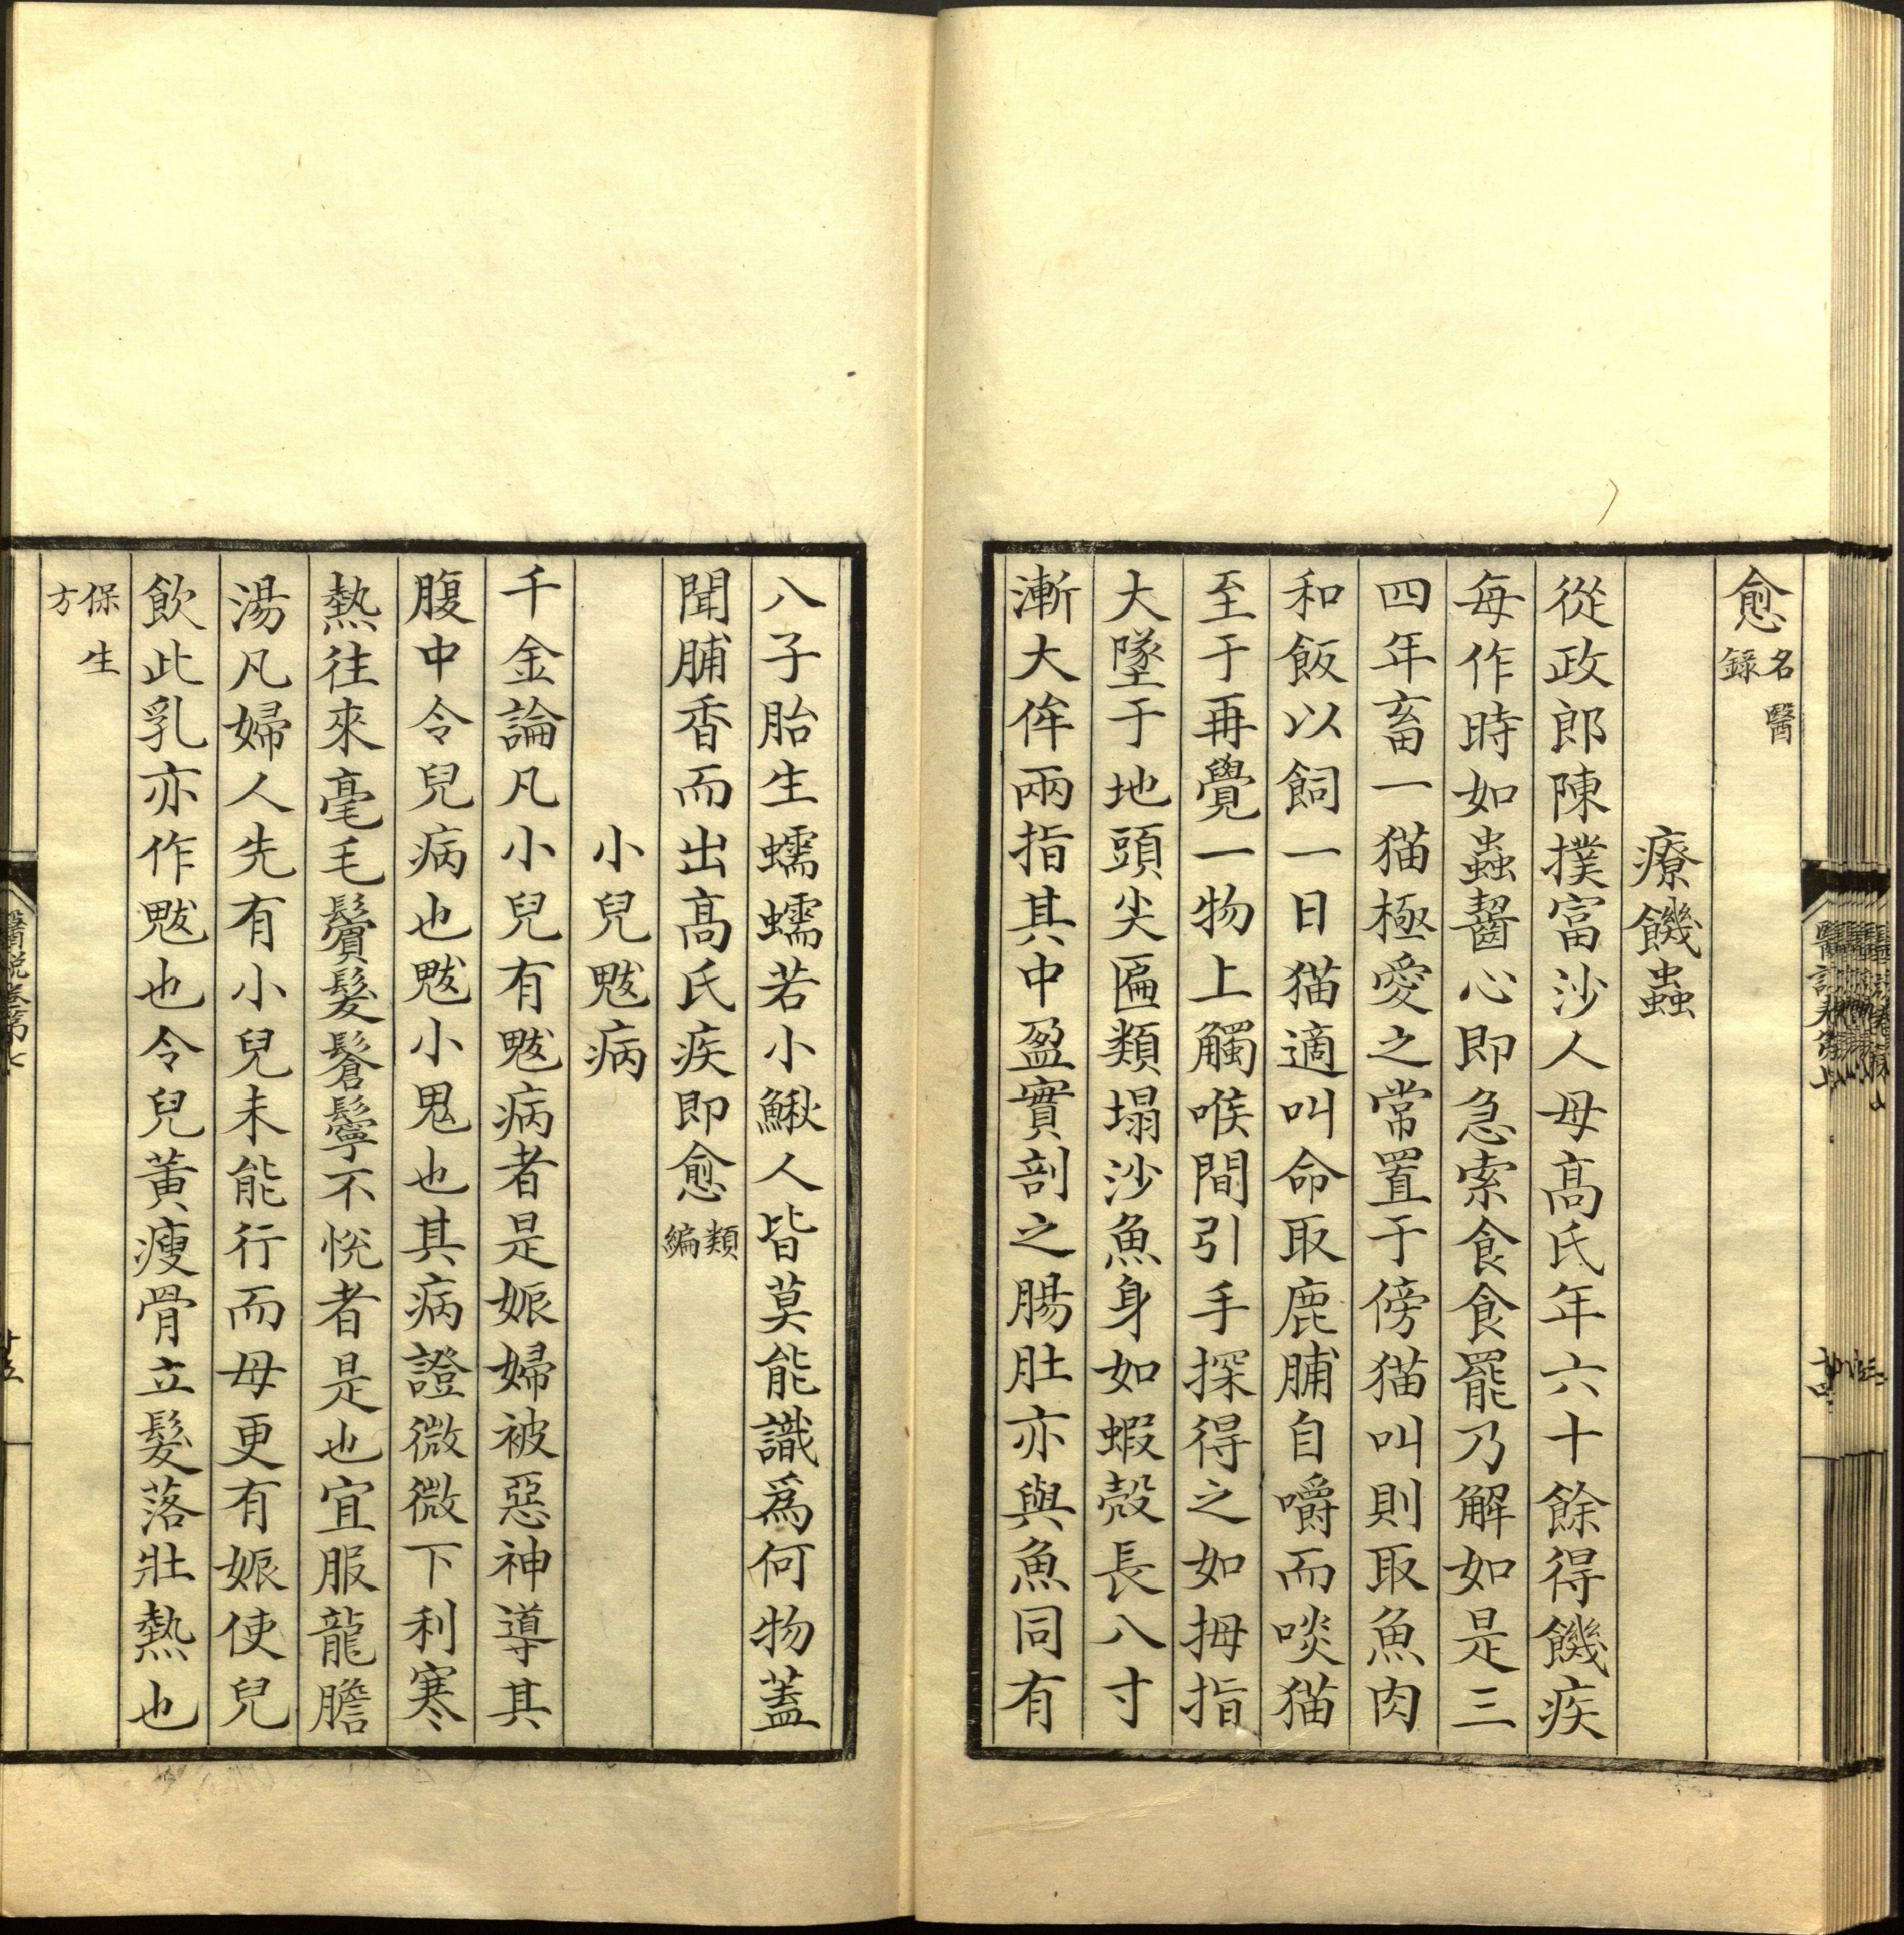 愈名醫錄
療饑蟲
從政郎陳撲富沙人母高氏年六十餘得饑疾
每作時如蟲齧心即急索食食罷乃解如是三
四年畜一猫極愛之常置于傍猫叫則取魚肉
和飯以飼一日猫適叫命取鹿脯自嚼而啖猫
至于再覺一物上觸喉間引手探得之如拇指
大墜于地頭尖匾類塌沙魚身如蝦殼長八寸
漸大侔兩指其中盈實剖之腸肚亦與魚同有
八子胎生蠕蠕若小鰍人皆莫能識爲何物蓋
聞脯香而出高氏疾即愈類編
小兒魃病
千金論凡小兒有魃病者是娠婦被惡神導其
腹中令兒病也魃小鬼也其病證微微下利寒
熱往來毫毛鬢髮鬇鬡不悅者是也宜服龍膽
湯凡婦人先有小兒未能行而母更有娠使兒
飲此乳亦作魃也令兒黃瘦骨立髮落壯熱也
保生方
醫說卷第七
廿五